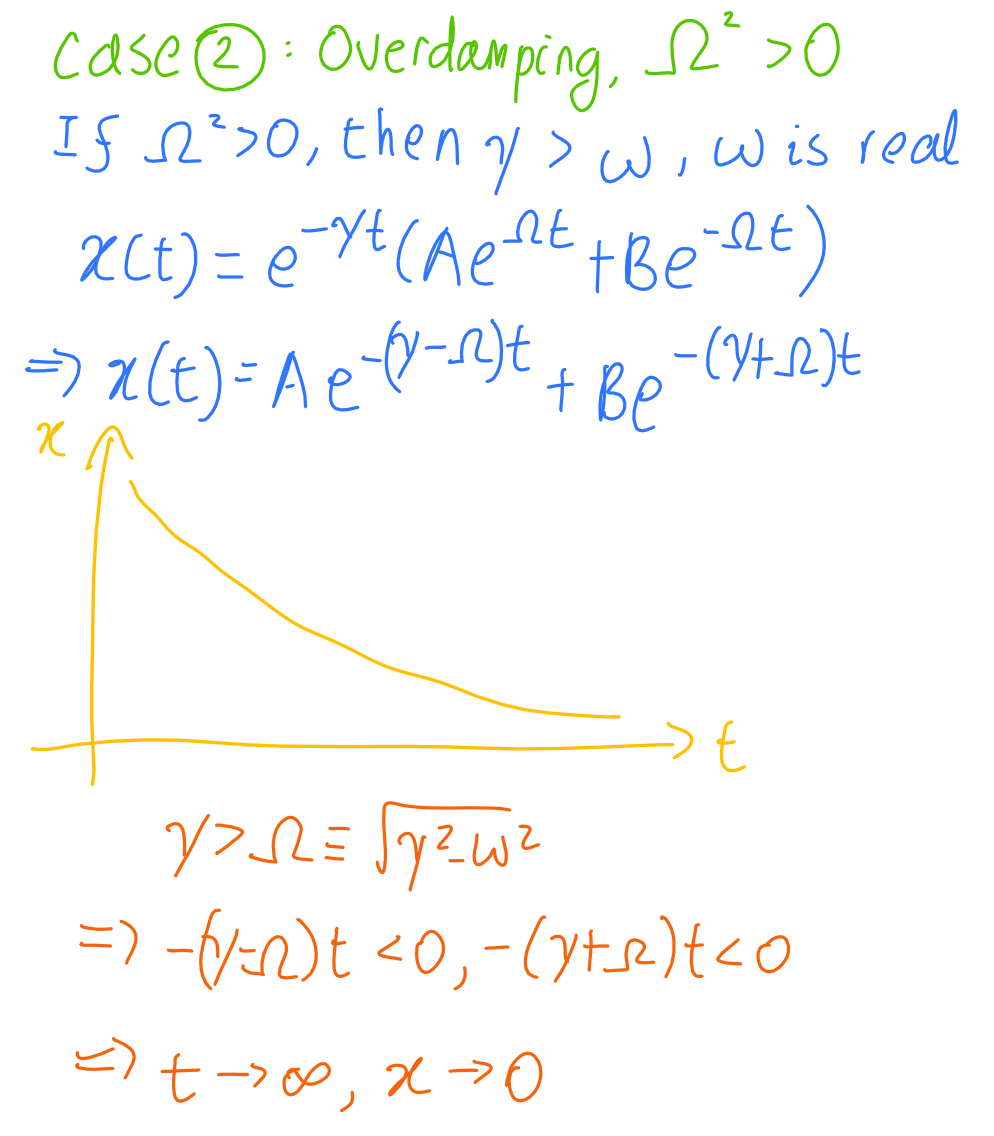 case ② : Overdamping, Ω² > 0
If Ω² > 0, then γ > ω, ω is real
x(t) = e^{-γt}(Ae^{Ωt} + Be^{-Ωt})
⇒ x(t) = Ae^{-(γ-Ω)t} + Be^{-(γ+Ω)t}
x
t
γ > Ω ≡ √(γ² - ω²)
⇒ -(γ-Ω)t < 0, -(γ+Ω)t < 0
⇒ t → ∞, x → 0